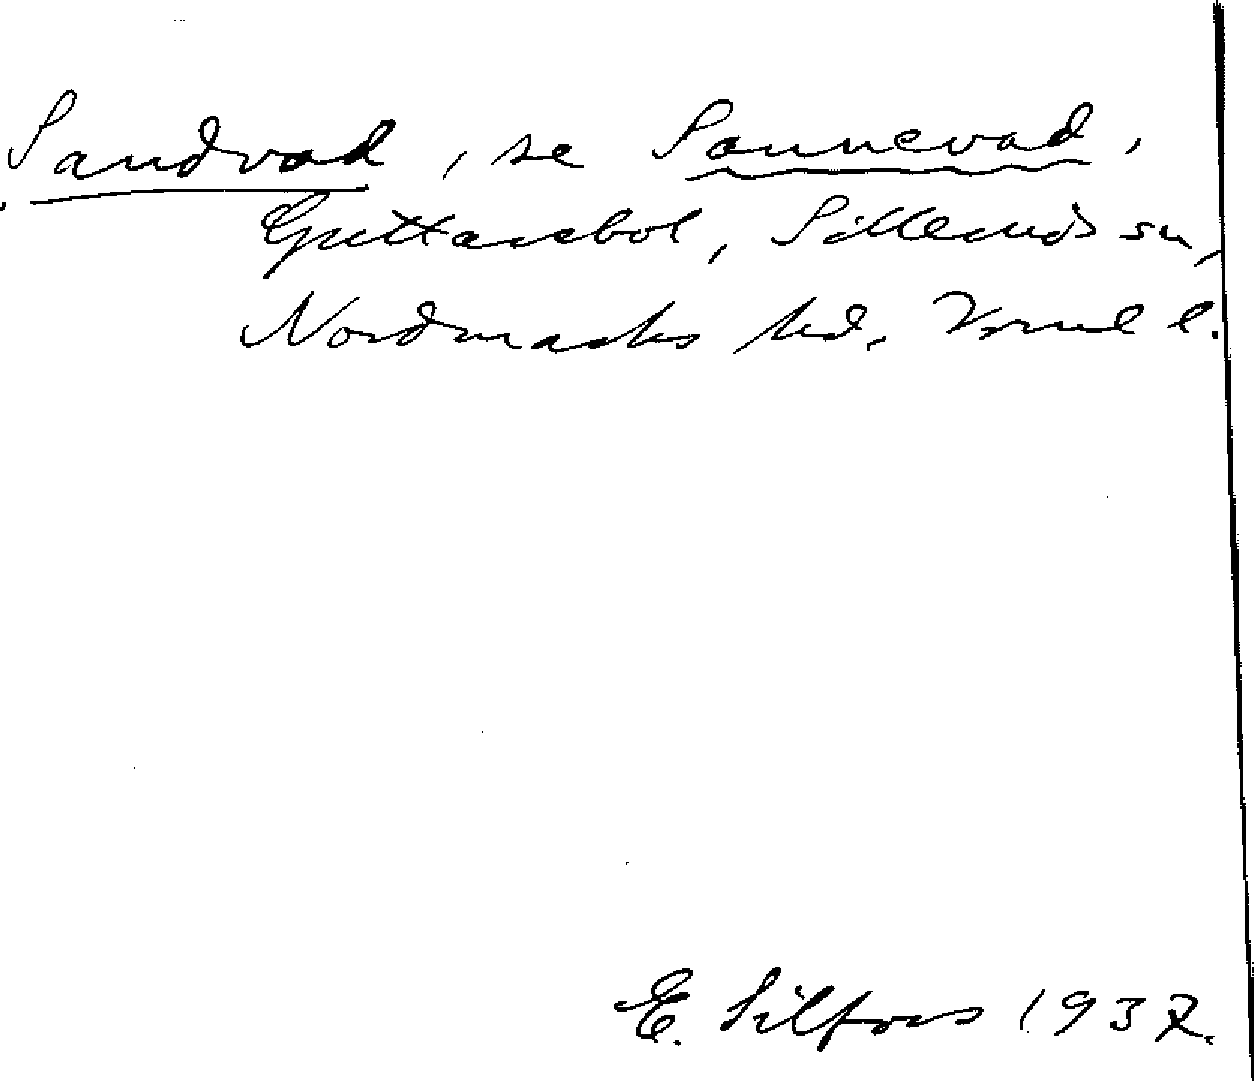 Sandvad, se Sonnevad,
Guttarebol, Sillerud sn,
Nordmarks hd, Vrml l.
E. Silfors 1937.